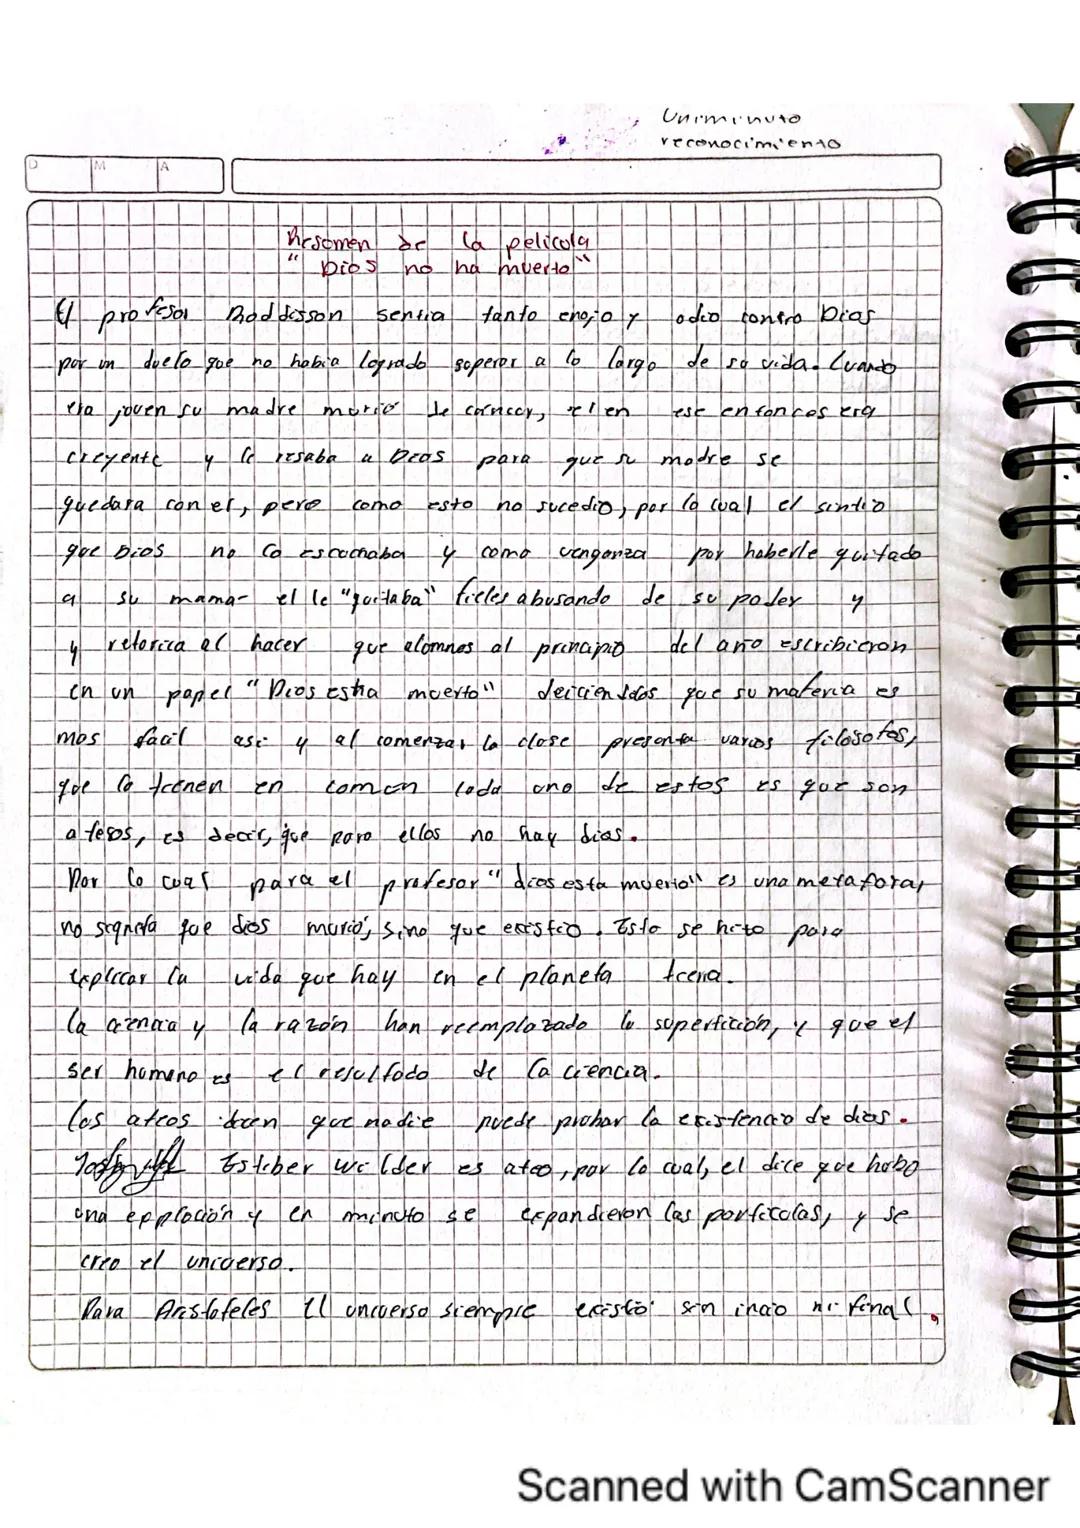 Uniminuto
reconocimiento
D M A
Resomen de la pelicola
" Dios no ha muerto "
El profesor Raddisson sentia tanto enojo y odio contra Dios
por un duelo que no habia logrado soperar a lo largo de so vida. Cuando
era joven su madre murió de cancer, el en ese entonces era
creyente y le resaba a Dios para que su madre se
quedara con el, pero como esto no sucedio, por lo cual el sintio
que Dios no lo escuchaba y como venganza por haberle quitado
a su mama- el le "quitaba" fieles abusando de su poder y
y retorica al hacer que alomnos al principio del año escribieron
en un papel "Dios esta muerto" que su materia es
mas facil asi y al comenzar la clase presenta varios filosofos,
que lo tienen en comon cada ono de estos es que son
ateos, es decir, que para ellos no hay dios.
Por lo cual para el profesor "dios esta muerto" es una metafora,
no que dios murió, sino que existio. Esto se hizo para
explicar la vida que hay en el planeta tierra.
la ciencia y la razón han reemplazado la superticion, y que el
ser humano es el resultado de la ciencia.
los ateos dicen que nadie puede probar la existencia de dios.
Esteber wilder es ateo, por lo cual, el dice que hobo
una epplocion y en minuto se expandieron las particolas, y se
creo el universo.
Para Aristoteles El universo siempre existio sin inicio ni final.
Scanned with CamScanner